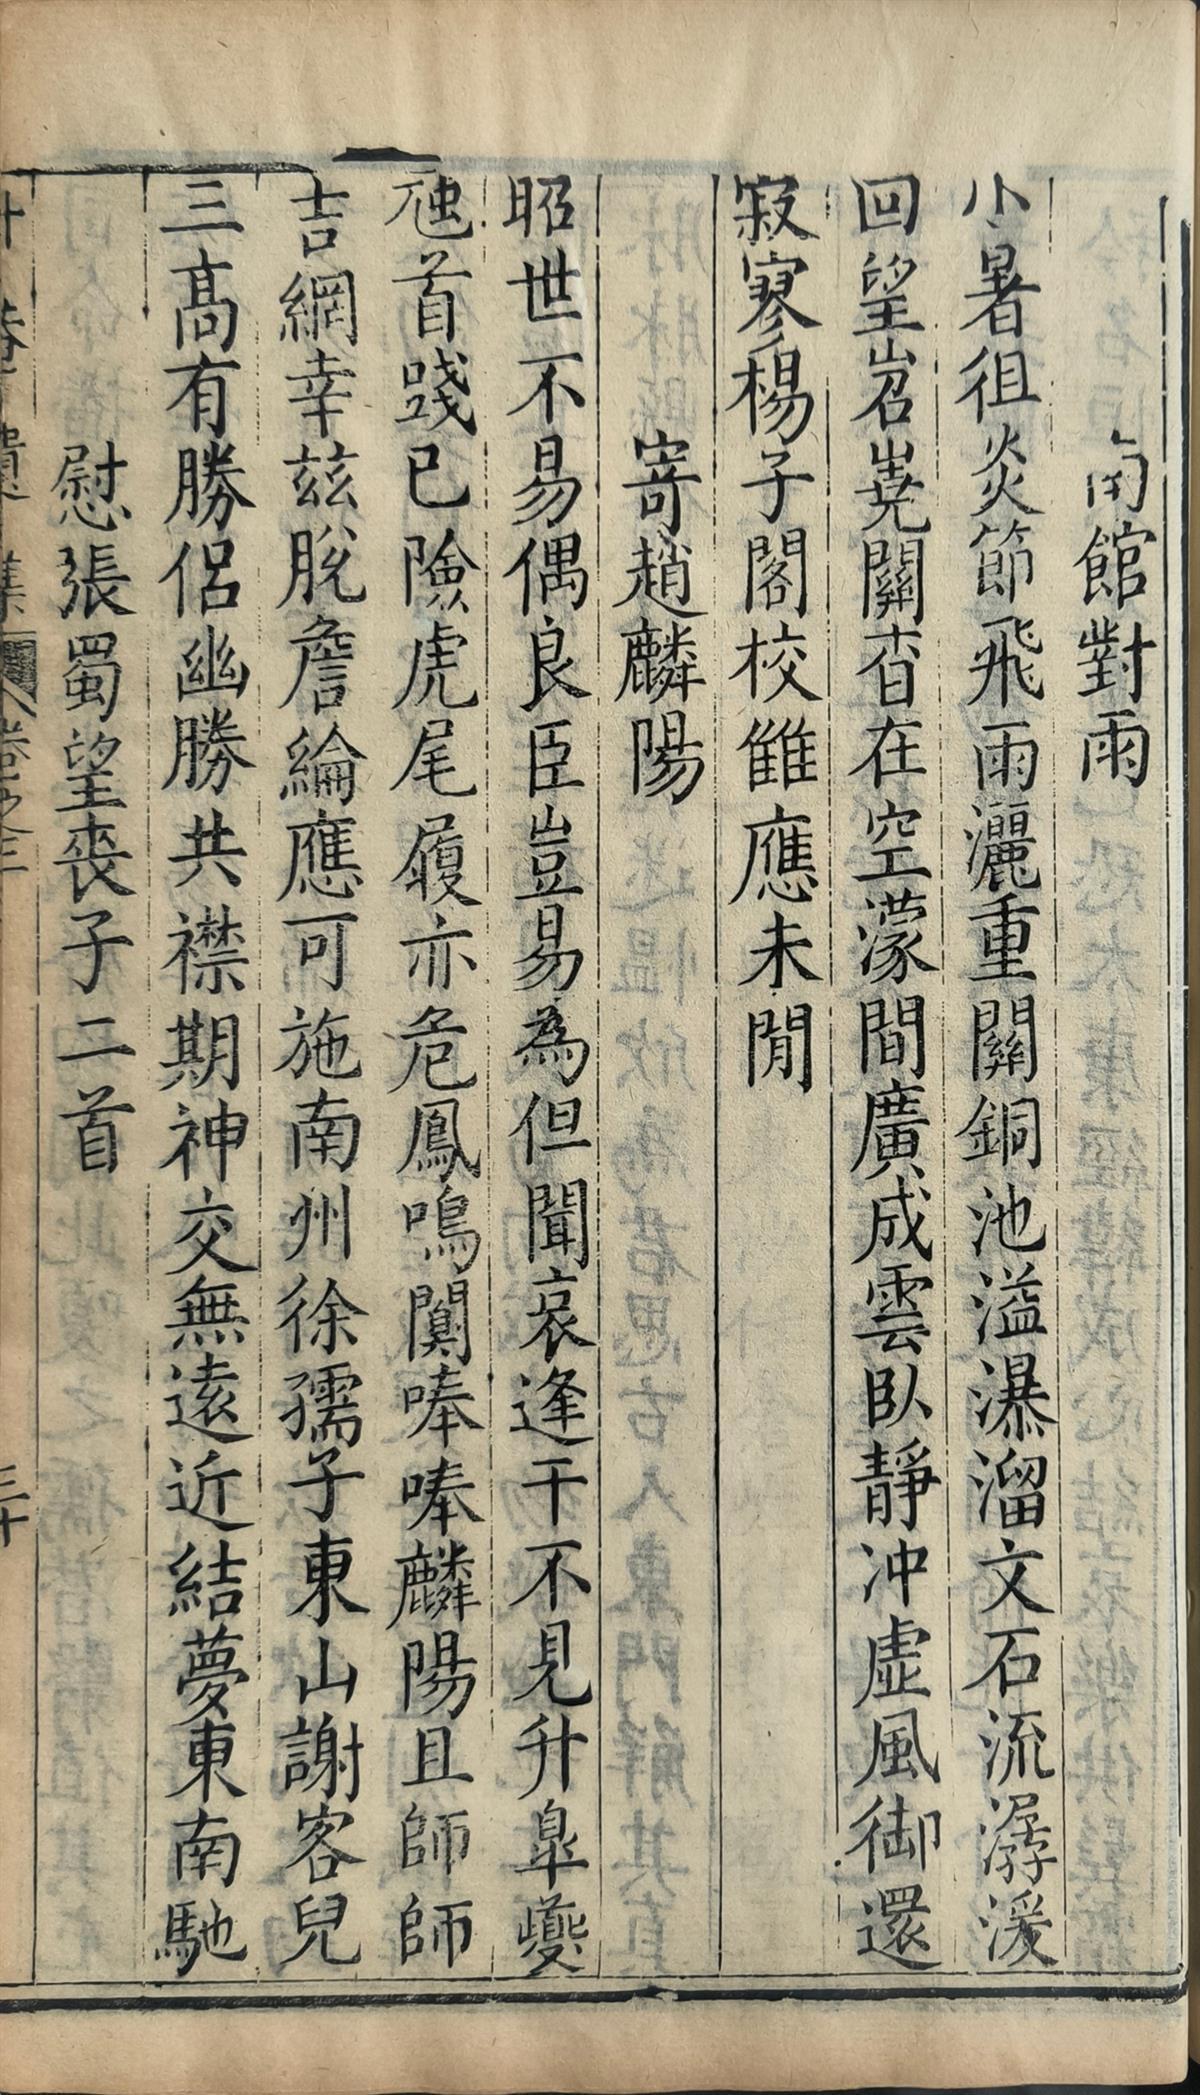 南館對雨
小暑徂炎節飛雨灑重關銅池溢瀑溜文石流潺湲
回望岧嶤關杳在空濛間廣成雲臥靜冲虛風御還
寂寥楊子閣校雠應未閒
寄趙麟陽
昭世不易偶良臣豈易為但聞哀逢干不見升皐夔
虺首踐已險虎尾履亦危鳳鳴闃唪唪麟陽且師師
吉網幸茲脫詹綸應可施南州徐孺子東山謝客兒
三高有勝侶幽勝共襟期神交無遠近結夢東南馳
慰張蜀望喪子二首
遺集 卷之三 三十